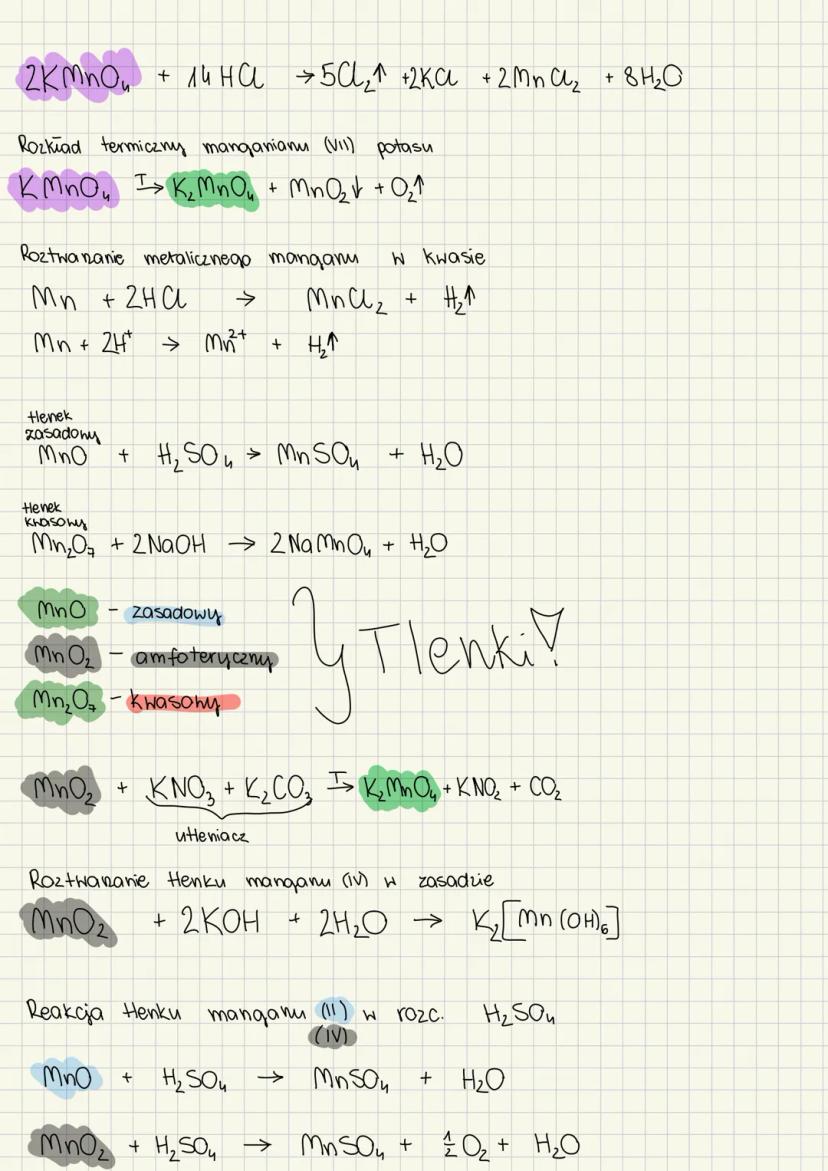 2KMnO₄ + 14HCl → 5Cl₂↑ + 2KCl + 2MnCl₂ + 8H₂O
Rozkład termiczny manganianu (VII) potasu
KMnO₄ T→ K₂MnO₄ + MnO₂↓ + O₂↑
Roztwarzanie metalicznego manganu w kwasie
Mn + 2HCl → MnCl₂ + H₂↑
Mn + 2H⁺ → Mn²⁺ + H₂↑
tlenek
zasadowy
MnO + H₂SO₄ → MnSO₄ + H₂O
tlenek
kwasowy
Mn₂O₇ + 2NaOH → 2NaMnO₄ + H₂O
MnO - zasadowy
MnO₂ - amfoteryczny
Tlenki!
Mn₂O₇ - kwasowy
MnO₂ + KNO₃ + K₂CO₃ T→ K₂MnO₄ + KNO₂ + CO₂
utleniacz
Roztwarzanie tlenku manganu (IV) w zasadzie
MnO₂ + 2KOH + 2H₂O → K₂[Mn(OH)₆]
Reakcja tlenku manganu (II) w rozc. H₂SO₄
(IV)
MnO + H₂SO₄ → MnSO₄ + H₂O
MnO₂ + H₂SO₄ → MnSO₄ + ½O₂ + H₂O